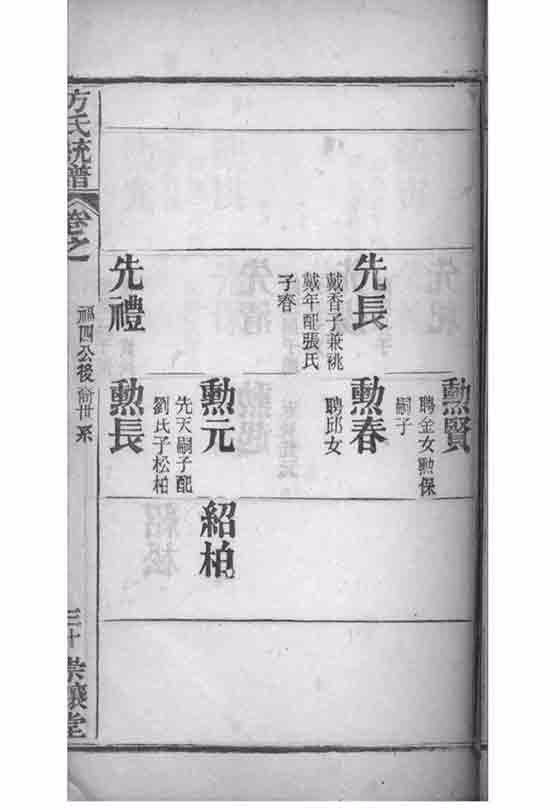 勲賢
聘金女勲保
嗣子
先長
戴香子兼祧
戴年配張氏
子春
勲春
聘邱女
勲元
先天嗣子配
劉氏子松柏
紹柏
先禮
勲長
方氏統譜
卷之
福四公後裔世系
三十
崇讓堂